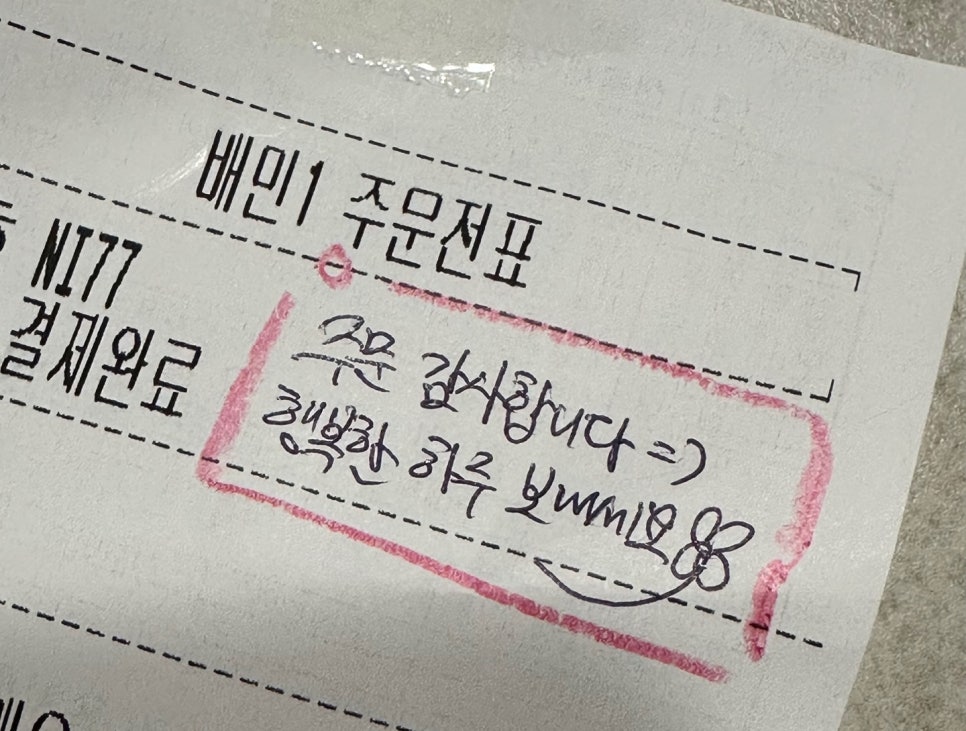 배민1 주문전표
NI77
결제완료
주문 감사합니다 =)
행복한 하루 보내세요